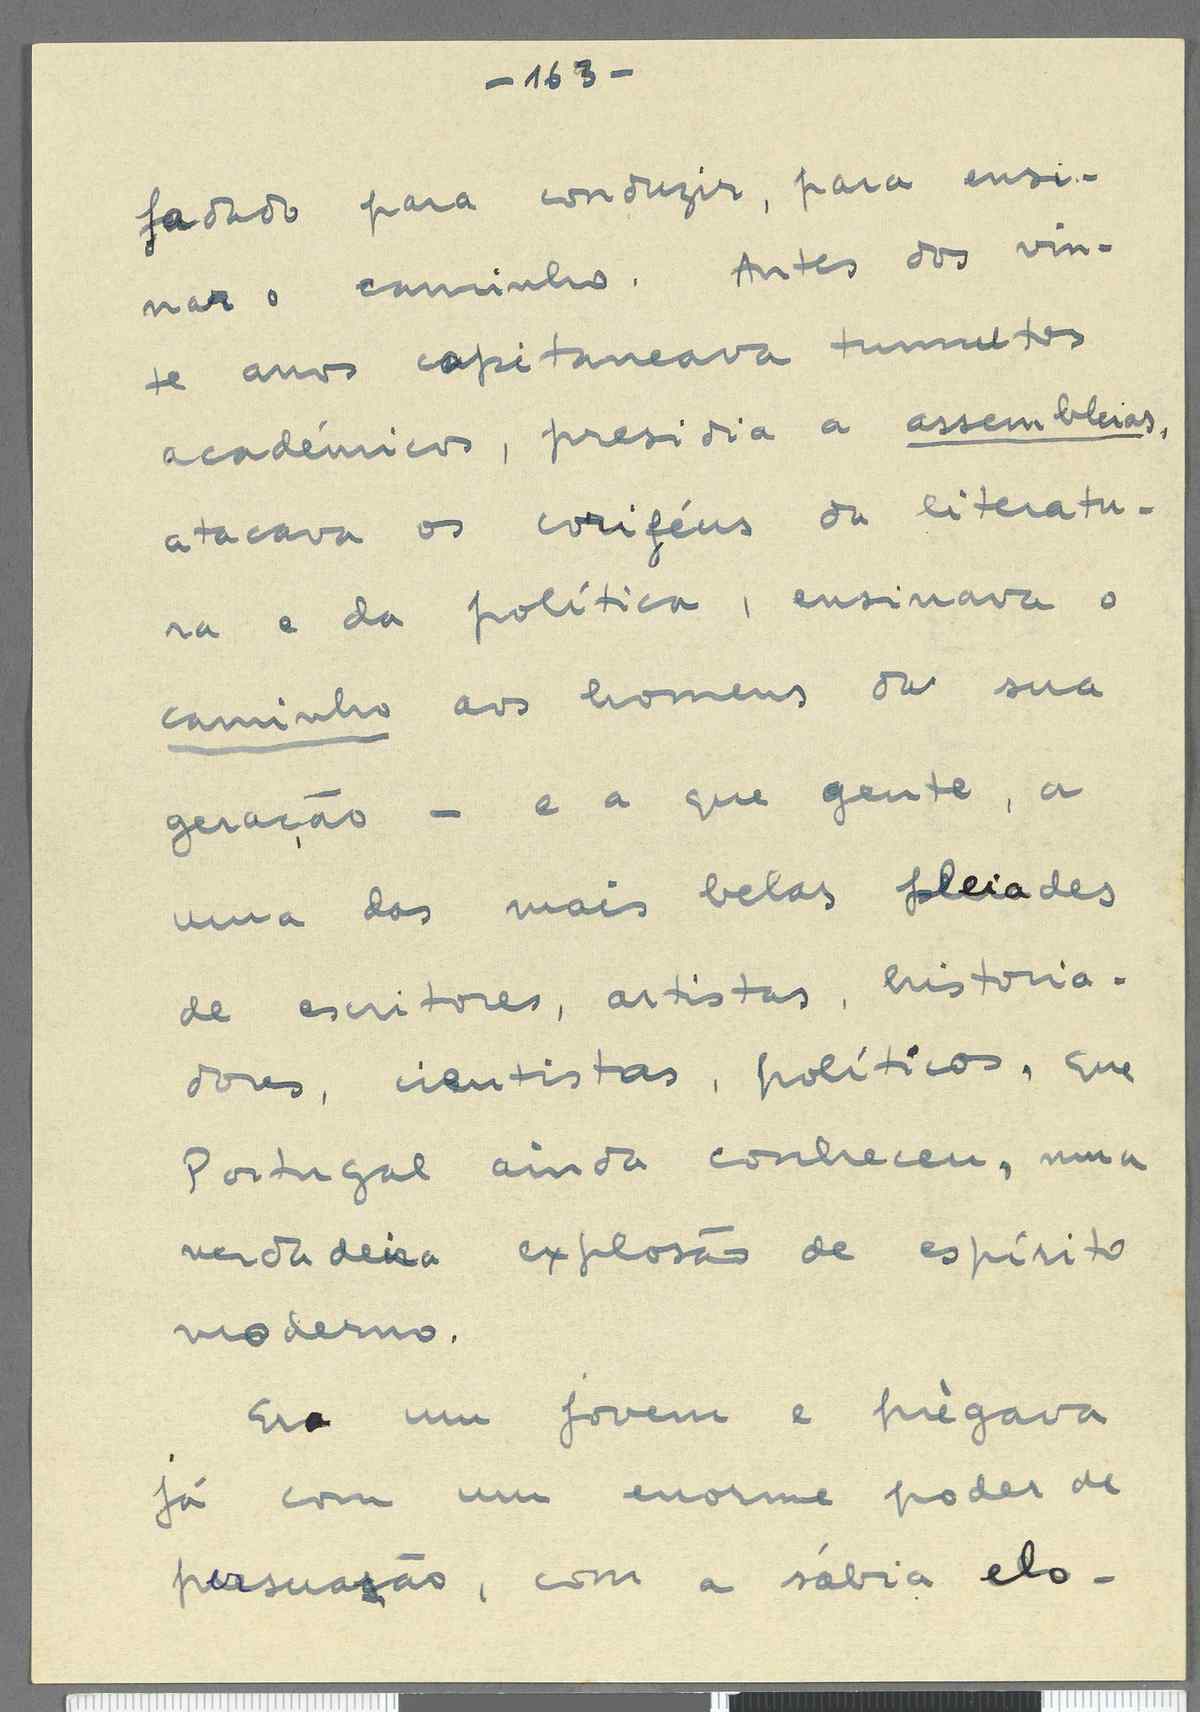 - 163 -
fadado para conduzir, para ensi-
nar o caminho. Antes dos vin-
te anos capitaneava tumultos
académicos, presidia a assembleias,
atacava os coriféus da literatu-
ra e da política, ensinava o
caminho aos homens da sua
geração - e a que gente, a
uma das mais belas pleiades
de escritores, artistas, historia-
dores, cientistas, políticos, que
Portugal ainda conheceu, numa
verdadeira explosão de espírito
moderno.
Era um jovem e prègava
já com um enorme poder de
persuasão, com a sábia elo-